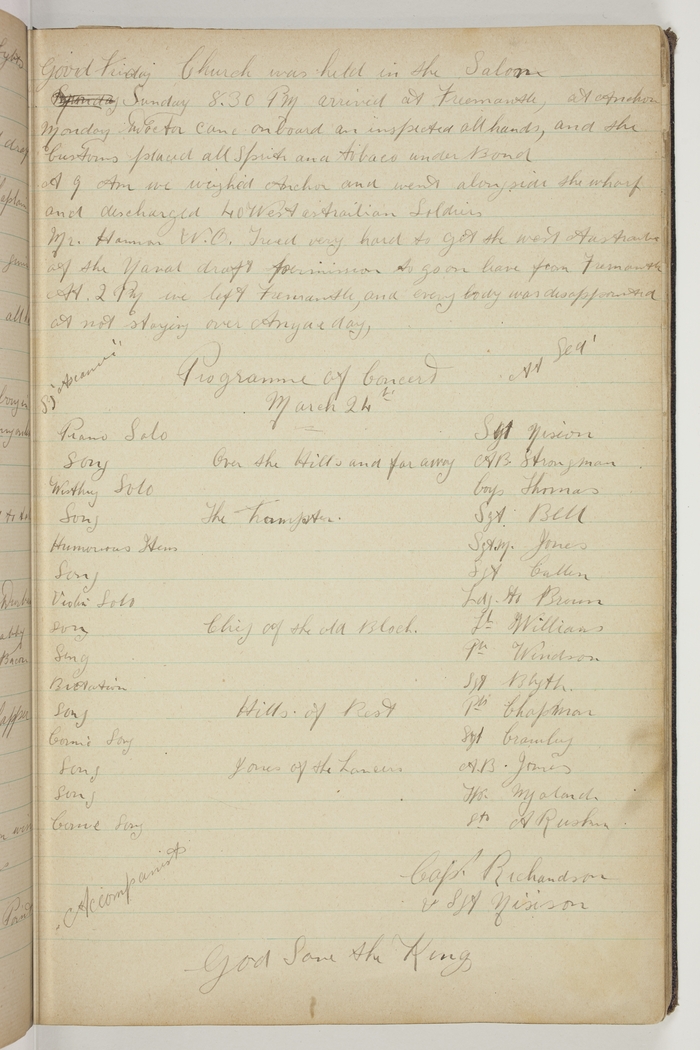 Good Friday Church was held in the Saloon
Sunday 8.30 PM arrived at Fremantle, at Anchor
Monday came onboard an inspected all hands, and the
Customs placed all Spirits and tobaco under Bond
At 9 Am we weighed Anchor and went alongside the wharf
and discharged 40 West astrailian Soldiers
Mr. Hannan W.O. Tried very hard to get the west Austrailian
of the Naval draft permission to go on leave from Fremantle
At. 2 PM we left Fremantle, and every body was disappointed
at not staying over Anzac day,
SS "Ascanius" Programme of Concert At Sea'
March 24th
Piano Solo Sgt Nixion
Song Over the Hills and far away A.B. Strongman
Solo Thomas
Song The Trumpeter. Sgt Bell
Humorous Items Sgt.M. Jones
Song Sgt Cullen
Violin Solo Ldg. Brown
Song Chip of the old Block. Lt Williams
Song Pte Windson
Sgt Blyth.
Song Hills of Rest Pte Chapman
Comic Song Sgt Cramley
Song Jones of the Lancers A.B. Jones
Song
Comic Song A Ruskin
Accompanists Capt Richardson
& Sgt Nixion
God Save the King